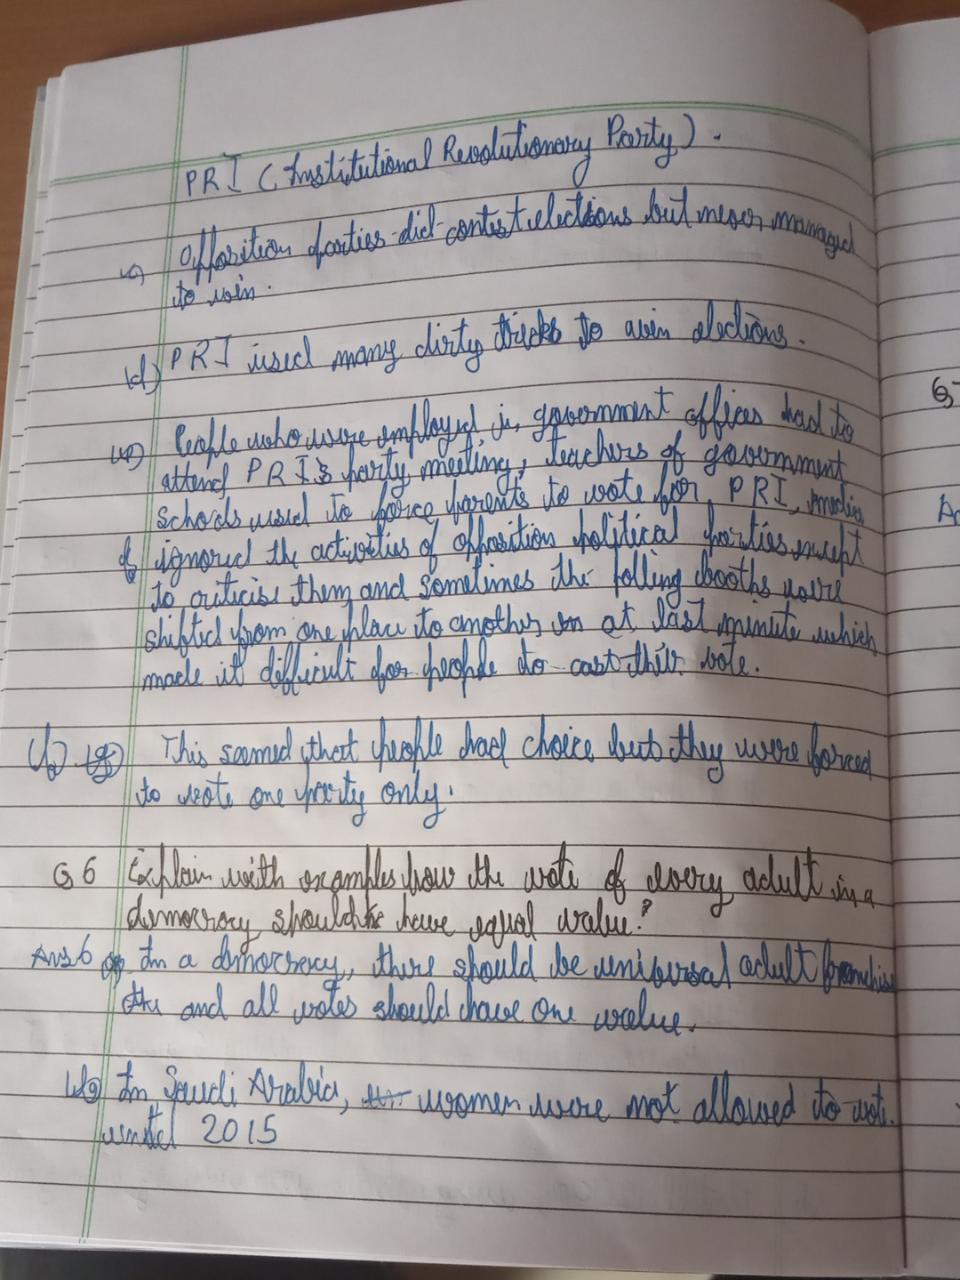 PRI (Institutional Revolutionary Party).
c) Opposition parties did contest elections but never managed
to win.
d) PRI used many dirty tricks to win elections.
e) People who were employed in government offices had to
attend PRI's party meeting, teachers of government
schools used to force parents to vote for PRI, media
ignored the activities of opposition political parties except
to criticise them and sometimes the polling booths were
shifted from one place to another at last minute which
made it difficult for people to cast their vote.
f) This seemed that people had choice but they were forced
to vote one party only.
Q6 Explain with examples how the vote of every adult in a
democracy should have equal value?
Ans6 a) In a democracy, there should be universal adult franchise
and all votes should have one value.
b) In Saudi Arabia, women were not allowed to vote
until 2015
Q
A